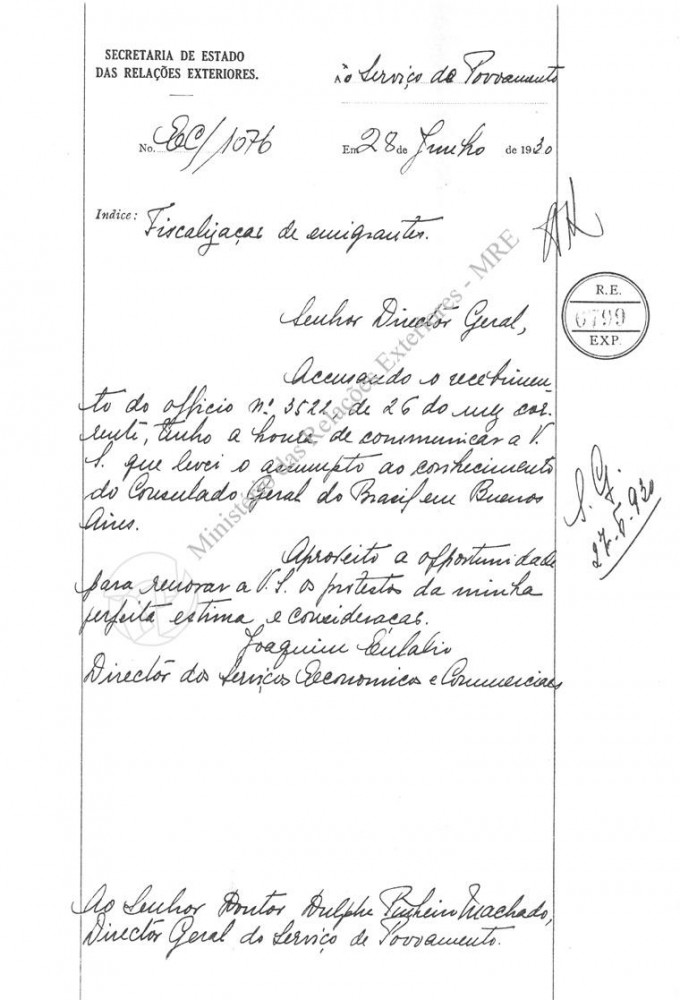 SECRETARIA DE ESTADO
DAS RELAÇÕES EXTERIORES.
Ao Serviço do Povoamento
No. EC/1076
Em 28 de Junho de 1930
Indice: Fiscalizaçao de emigrantes.
R. E.
0799
EXP.
Senhor Director Geral,
Accusando o recebimen-
to do officio nº. 3522, de 26 do mez cor-
rente, tenho a honra de communicar a V.
S. que levei o assumpto ao conhecimento
do Consulado Geral do Brasil em Buenos
Aires.
Aproveito a opportunidade
para renovar a V. S. os protestos da minha
perfeita estima e consideraçao.
Joaquim Eulalio
Director dos Serviços Economicos e Commerciaes
S. G.
27.6.930
Ao Senhor Doutor Dulphe Pinheiro Machado,
Director Geral do Serviço de Povoamento.
Ministério das Relações Exteriores - MRE